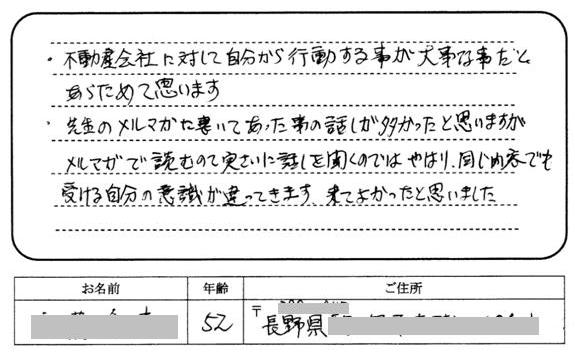 ・不動産会社に対して自分から行動する事が大事な事だと
あらためて思います
・先生のメルマガに書いてあった事の話しが多かったと思いますが
メルマガで読むのと実さいに話しを聞くのではやはり、同じ内容でも
受ける自分の意識が違ってきます 来てよかったと思いました
お名前 年齢 ご住所
52 〒
長野県